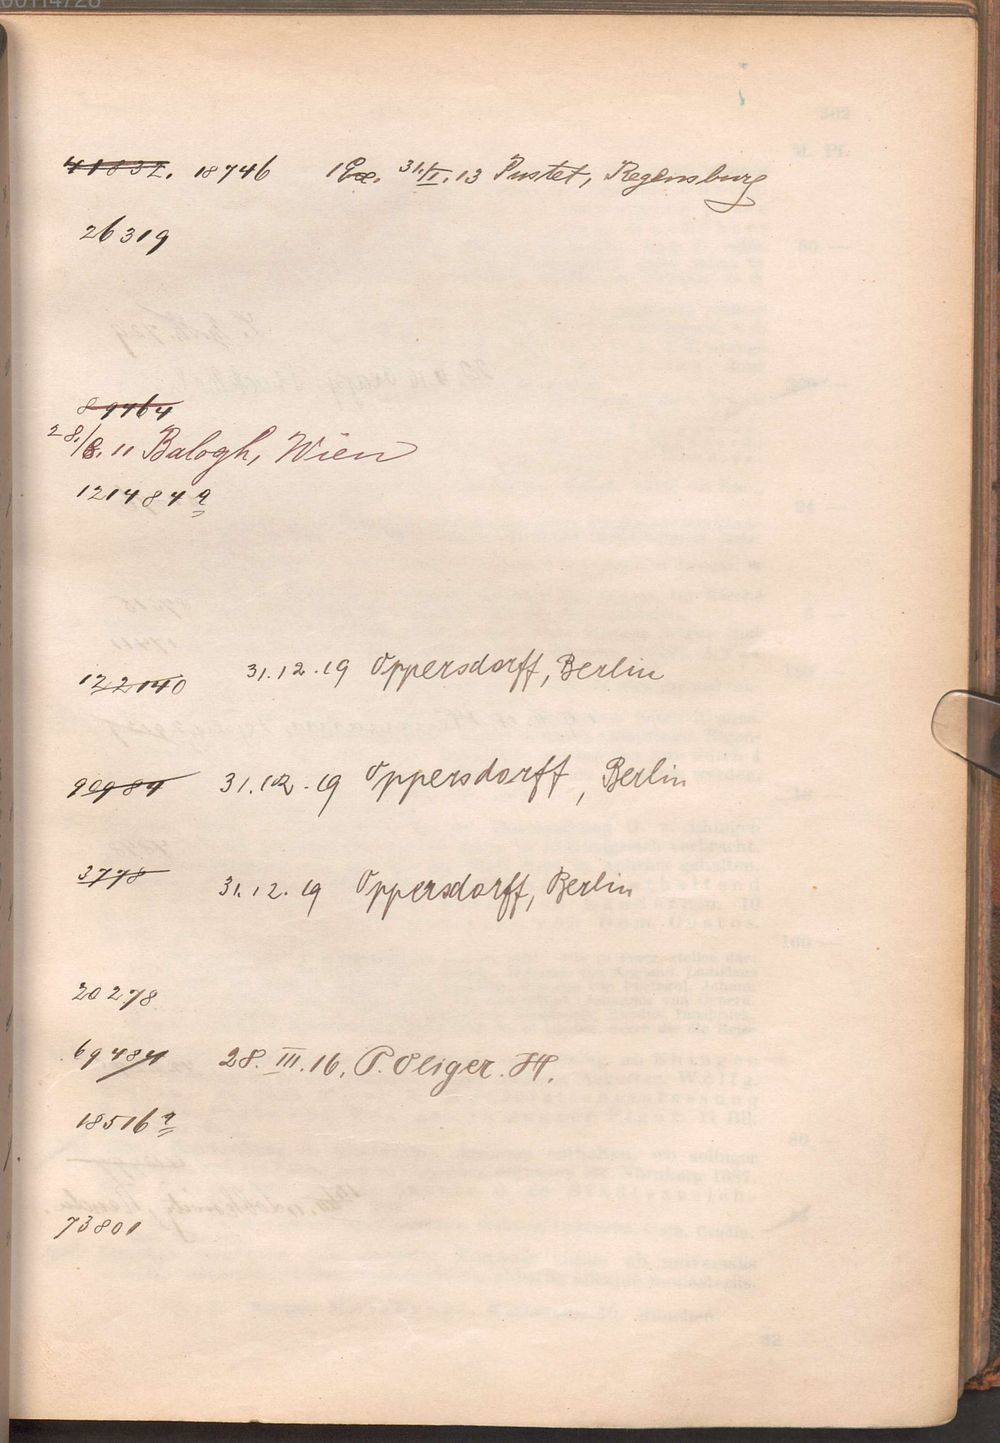 41832. 18746 1 Ex. 31./I.13 Pustet, Regensburg
26319
89464
28./8. 11 Balogh, Wien
121484 a
122140 31.12.19 Oppersdorff, Berlin
90989 31.12.19 Oppersdorff, Berlin
3778 31.12.19 Oppersdorff, Berlin
20278
69484 28. III. 16. P. Oliger. H.
18516 a
73801